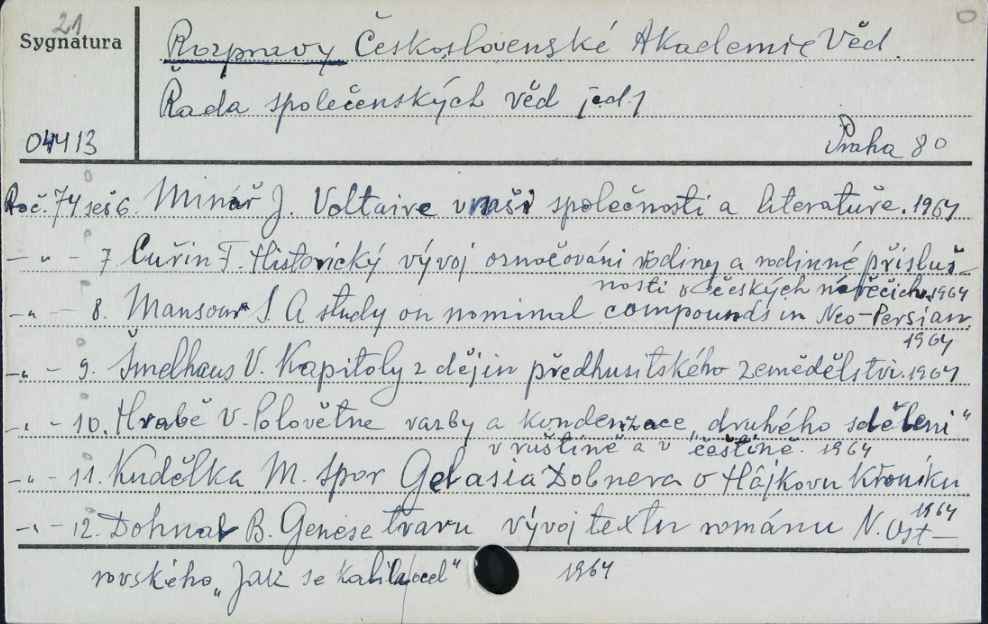 21
Sygnatura
Rozpravy Československé Akademie Věd.
Řada společenských věd jed. 1
04413
Praha 80
Roč. 74 seš 6. Minář J. Voltaire v naši společnosti a literatuře. 1964
- " - 7 Cuřin F. Historický vývoj označováni rodiny a rodinné přísluš-
nosti v českých nářečich. 1964
- " - 8. Mansour J. A study on nominal compounds in Neo-Persian,
1964
- " - 9. Šmelhaus V. Kapitoly z dějin předhusitského zemědělstvi. 1964
- " - 10. Hrabě V. Polovětne vazby a kondenzace „druhého sděleni"
v ruštině a v češtině. 1964
- " - 11. Kudělka M. Spor Gelasia Dobnera o Hájkovu kroniku
1964
- " - 12. Dohnal B. Genese tvaru vývoj textu románu N. Ost-
rovského „Jak se kalila ocel" 1964